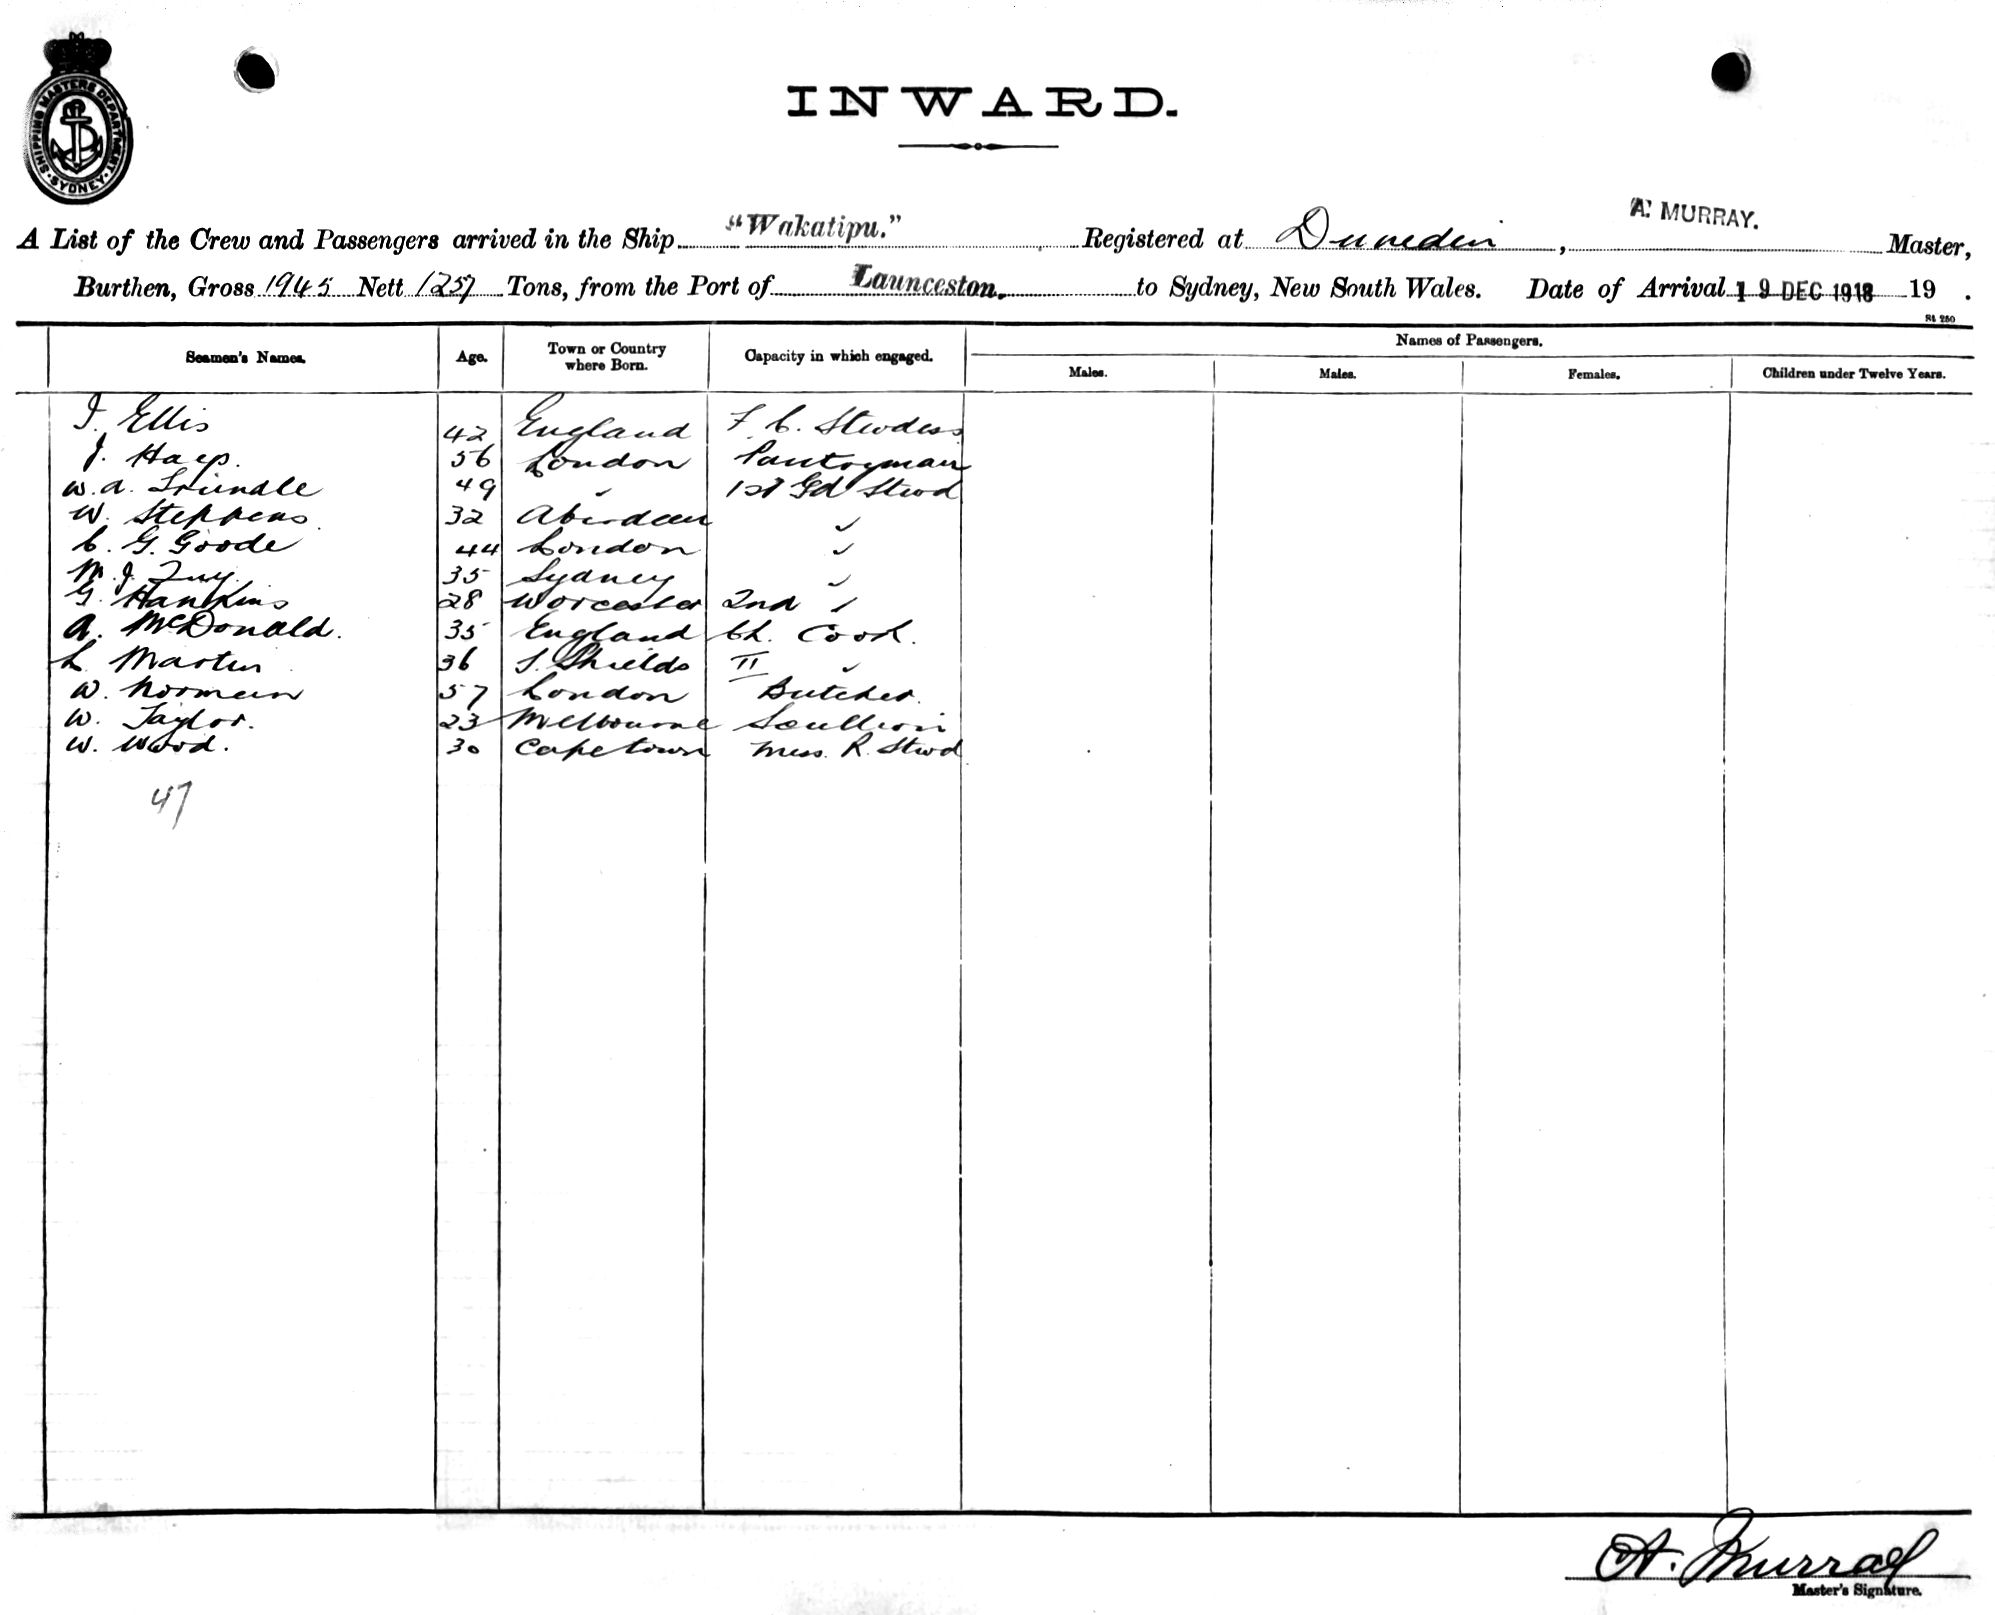 SHIPPING MASTERS DEPARTMENT · SYDNEY ·
INWARD.
A List of the Crew and Passengers arrived in the Ship "Wakatipu." Registered at Dunedin, A. MURRAY. Master,
Burthen, Gross 1945 Nett 1257 Tons, from the Port of Launceston. to Sydney, New South Wales. Date of Arrival 19 DEC 1918 19 .
St 260
Seamen's Names. Age. Town or Country where Born. Capacity in which engaged. Names of Passengers.
Males. Males. Females. Children under Twelve Years.
I. Ellis 42 England F. C. Stwdess
J. 56 London Pantryman
W. A. Trundle 49 " 1st Gd Stwd
W. Stephens 32 Aberdeen "
C. G. Goode 44 London "
M. J. 35 Sydney "
G. Hankins 28 Worcester 2nd "
A. McDonald. 35 England Ch. Cook.
L Martin 36 S. Shields II "
W. Norman 57 London Butcher.
W. Taylor. 23 Melbourne Scullion
W. Wood. 30 Capetown Mess. R. Stwd
47
A. Murray
Master's Signature.